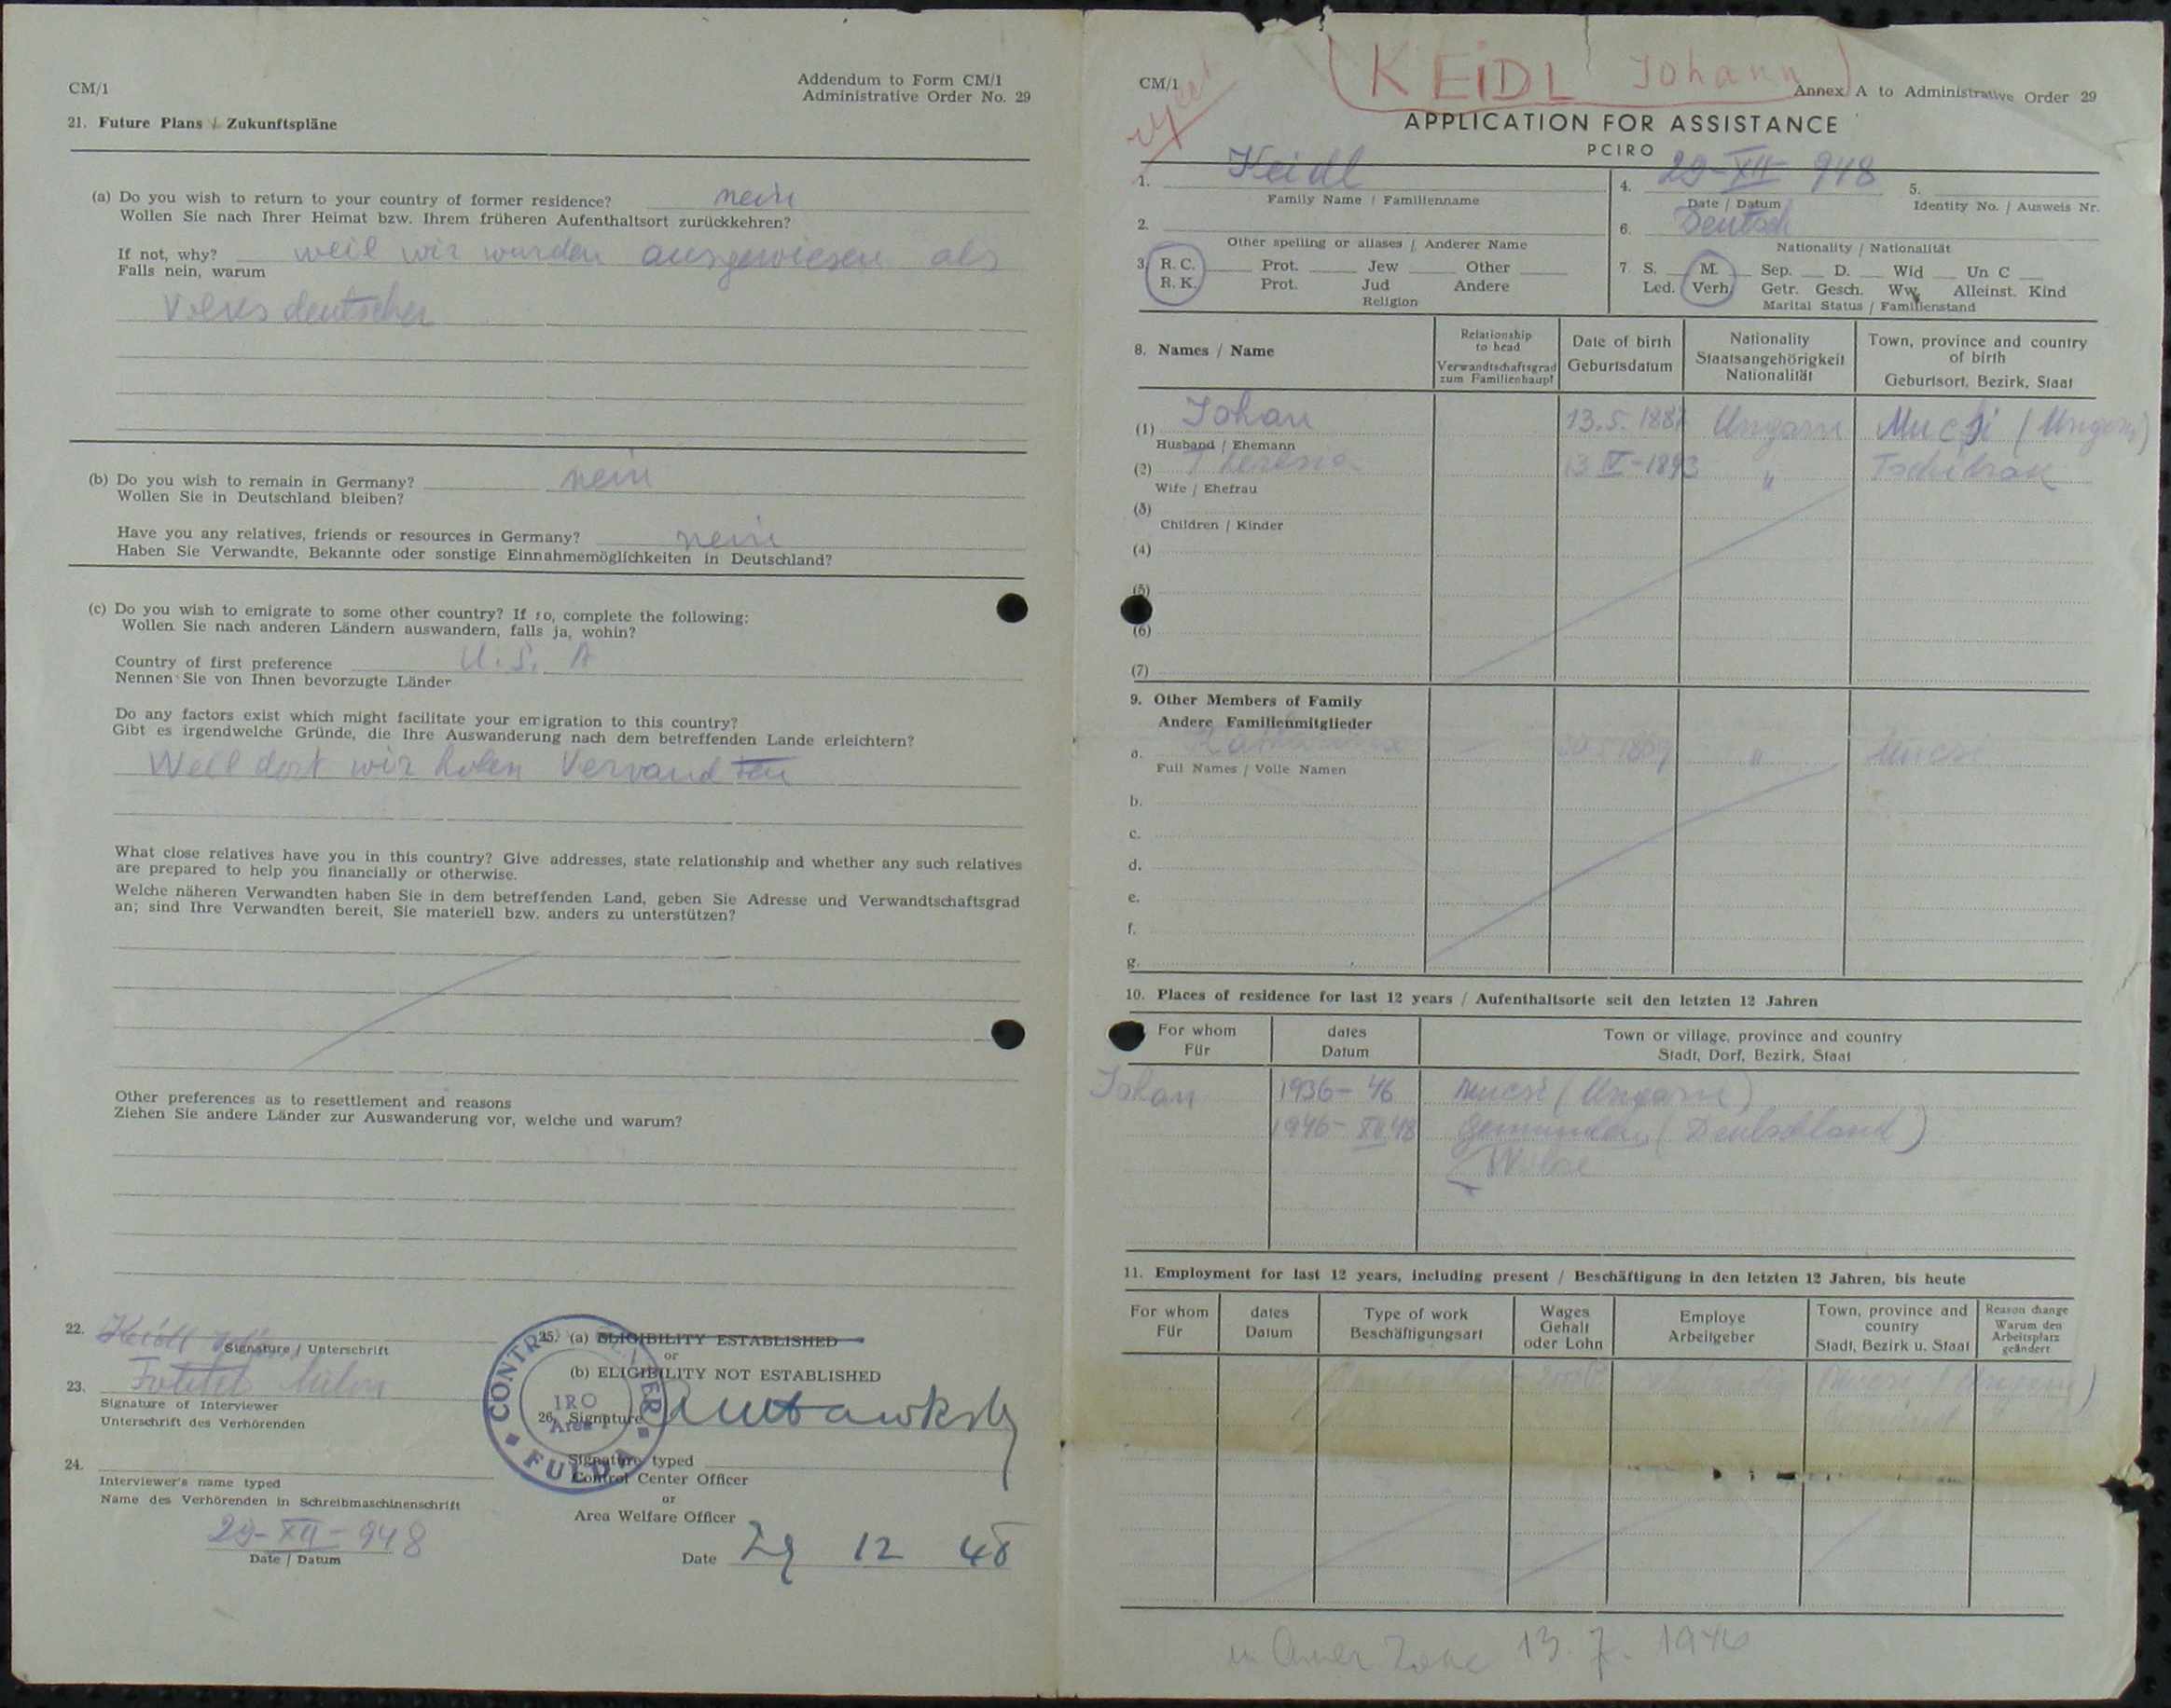 CM/1
Addendum to Form CM/1
Administrative Order No. 29
21. Future Plans / Zukunftspläne
(a) Do you wish to return to your country of former residence? nein
Wollen Sie nach Ihrer Heimat bzw. Ihrem früheren Aufenthaltsort zurückkehren?
If not, why? weil wir wurden ausgewiesen als
Falls nein, warum
Volksdeutscher
(b) Do you wish to remain in Germany? nein
Wollen Sie in Deutschland bleiben?
Have you any relatives, friends or resources in Germany? nein
Haben Sie Verwandte, Bekannte oder sonstige Einnahmemöglichkeiten in Deutschland?
(c) Do you wish to emigrate to some other country? If so, complete the following:
Wollen Sie nach anderen Ländern auswandern, falls ja, wohin?
Country of first preference U. S. A
Nennen Sie von Ihnen bevorzugte Länder
Do any factors exist which might facilitate your emigration to this country?
Gibt es irgendwelche Gründe, die Ihre Auswanderung nach dem betreffenden Lande erleichtern?
Weil dort wir haben Vervandten
What close relatives have you in this country? Give addresses, state relationship and whether any such relatives
are prepared to help you financially or otherwise.
Welche näheren Verwandten haben Sie in dem betreffenden Land, geben Sie Adresse und Verwandtschaftsgrad
an; sind Ihre Verwandten bereit, Sie materiell bzw. anders zu unterstützen?
Other preferences as to resettlement and reasons
Ziehen Sie andere Länder zur Auswanderung vor, welche und warum?
22. Keidl
Signature / Unterschrift
23.
Signature of Interviewer
Unterschrift des Verhörenden
24.
Interviewer's name typed
Name des Verhörenden in Schreibmaschinenschrift
29-XII-948
Date / Datum
25. (a) ELIGIBILITY ESTABLISHED
or
(b) ELIGIBILITY NOT ESTABLISHED
26. Signature
Signature typed
Control Center Officer
or
Area Welfare Officer
Date 29 12 48
IRO
Area 1
FULDA
(KEIDL Johann)
CM/1
Annex A to Administrative Order 29
APPLICATION FOR ASSISTANCE
PCIRO
1. Keidl
Family Name / Familienname
4. 29-XII 948
Date / Datum
5.
Identity No. / Ausweis Nr.
2.
Other spelling or aliases / Anderer Name
6. Deutsch
Nationality / Nationalität
3. R. C. Prot. Jew Other
R. K. Prot. Jud Andere
Religion
7 S. M. Sep. D. Wid Un C
Led. Verh. Getr. Gesch. Ww. Alleinst. Kind
Marital Status / Familienstand
8. Names / Name
Relationship to head
Verwandtschaftsgrad zum Familienhaupt
Date of birth
Geburtsdatum
Nationality
Staatsangehörigkeit
Nationalität
Town, province and country of birth
Geburtsort, Bezirk, Staat
(1) Johan 13.5. Ungarn Mucsi (Ungarn)
Husband / Ehemann
(2) Theresia 13 IV-1893 "
Wife / Ehefrau
(3)
Children / Kinder
(4)
(5)
(6)
(7)
9. Other Members of Family
Andere Familienmitglieder
a. Katharina " Mucsi
Full Names / Volle Namen
b.
c.
d.
e.
f.
g.
10. Places of residence for last 12 years / Aufenthaltsorte seit den letzten 12 Jahren
For whom
Für
dates
Datum
Town or village, province and country
Stadt, Dorf, Bezirk, Staat
Johan 1936-46 Mucsi (Ungarn)
1946-XII 48 (Deutschland)
11. Employment for last 12 years, including present / Beschäftigung in den letzten 12 Jahren, bis heute
For whom
Für
dates
Datum
Type of work
Beschäftigungsart
Wages
Gehalt
oder Lohn
Employe
Arbeitgeber
Town, province and country
Stadt, Bezirk u. Staat
Reason change
Warum den
Arbeitsplatz
geändert
Mucsi (Ungarn)
13. 7. 1946